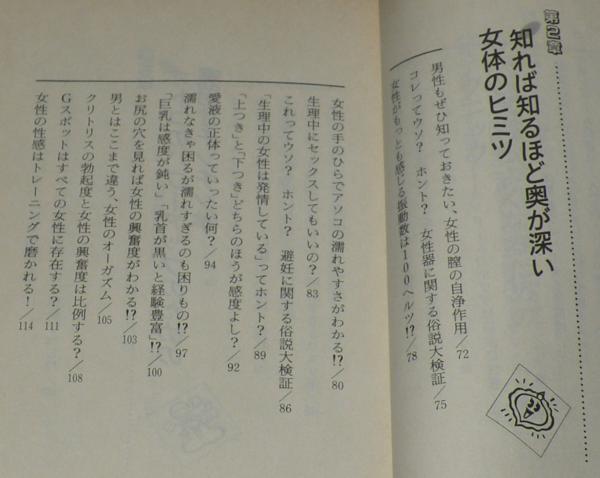 第2章
知れば知るほど奥が深い
女体のヒミツ
男性もぜひ知っておきたい、女性の膣の自浄作用/72
コレってウソ? ホント? 女性器に関する俗説大検証/75
女性がもっとも感じる振動数は100ヘルツ!?/78
女性の手のひらでアソコの濡れやすさがわかる!?/80
生理中にセックスしてもいいの?/83
これってウソ? ホント? 避妊に関する俗説大検証/86
「生理中の女性は発情している」ってホント?/89
「上つき」と「下つき」どちらのほうが感度よし?/92
愛液の正体っていったい何?/94
濡れなきゃ困るが濡れすぎるのも困りもの!?/97
「巨乳は感度が鈍い」「乳首が黒いと経験豊富」!?/100
お尻の穴を見れば女性の興奮度がわかる!?/103
男とはここまで違う、女性のオーガズム/105
クリトリスの勃起度と女性の興奮度は比例する?/108
Gスポットはすべての女性に存在する?/111
女性の性感はトレーニングで磨かれる!/114